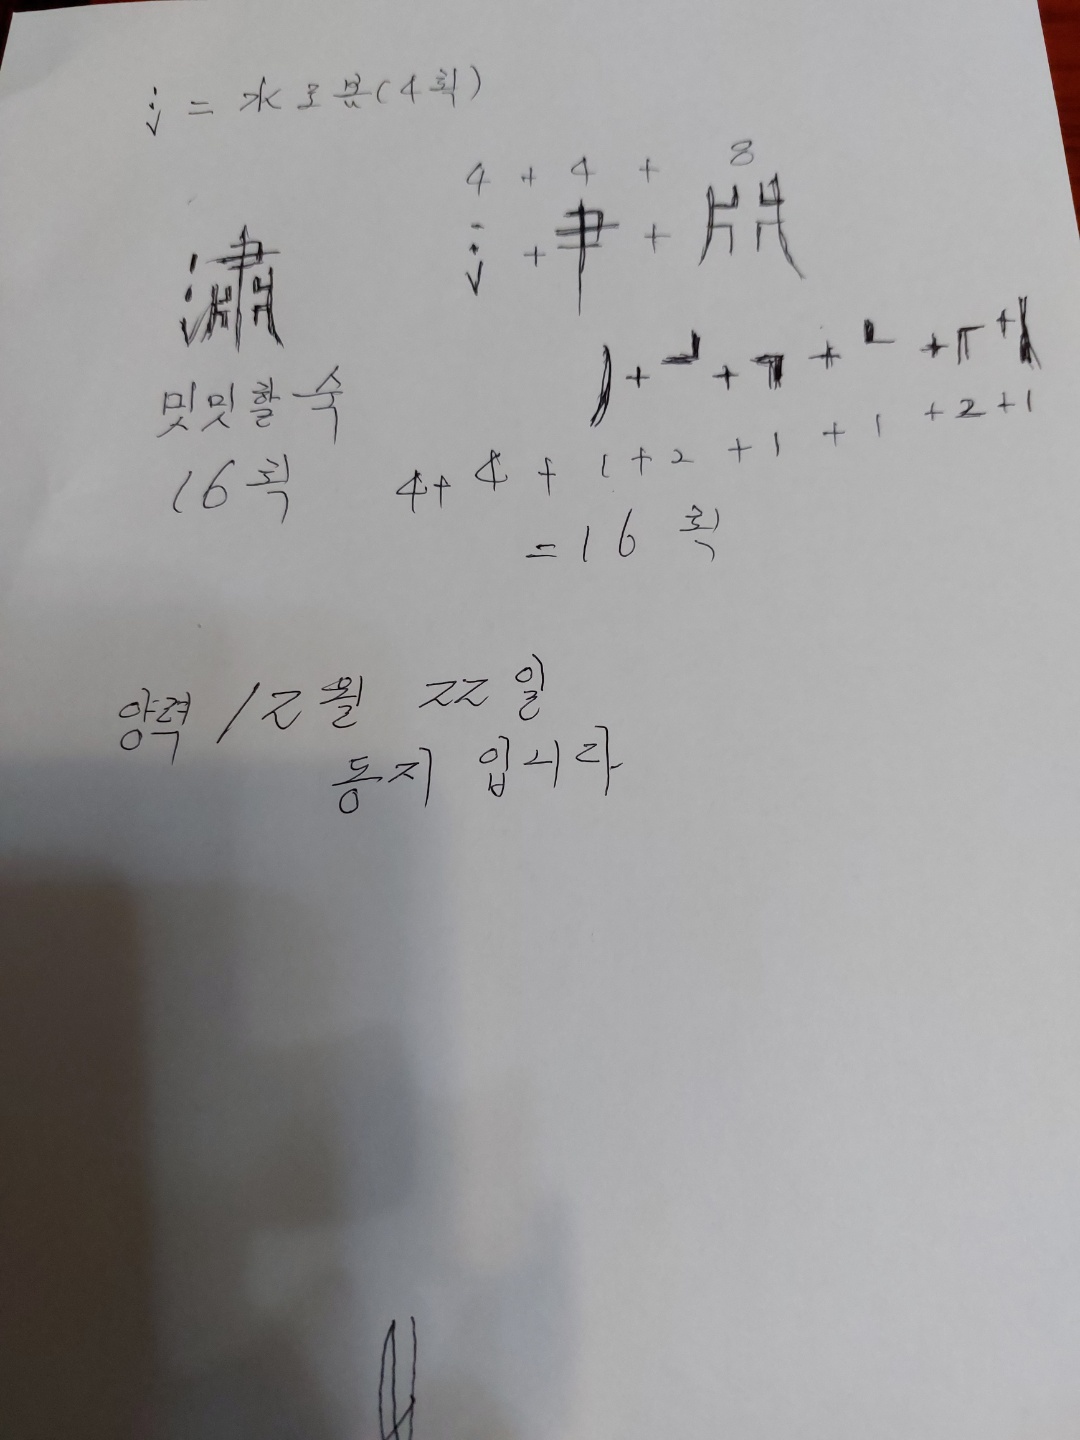 氵 = 水로봄(4획)
4 + 4 + 8
氵 + 肀 + 𣶒
潚
밋밋할 숙
16획
4+ 4 + 1 + 2 + 1 + 1 + 2 + 1
= 16 획
양력 12월 22일
동지 입니다